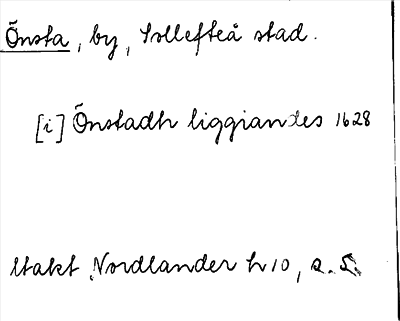 Önsta, by, Sollefteå stad.
[i] Önstadh liggiandes 1628
Utakt Nordlander h 10, s. 5.